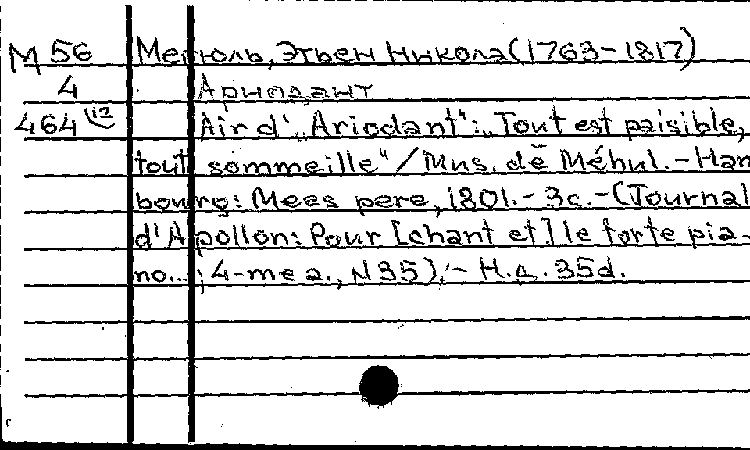 М 56 Мегюль, Этьен Никола (1763-1817)
4 Ариодант
464 12 Air d' „Ariodant": „Tout est paisible,
tout sommeille" / Mus. de Méhul. - Ham
bourg: Mees pere, 1801. - 3c. - (Journal
d'Apollon: Pour [chant et] le forte pia-
no...; 4-me a., N 35). - Н.д. 35d.